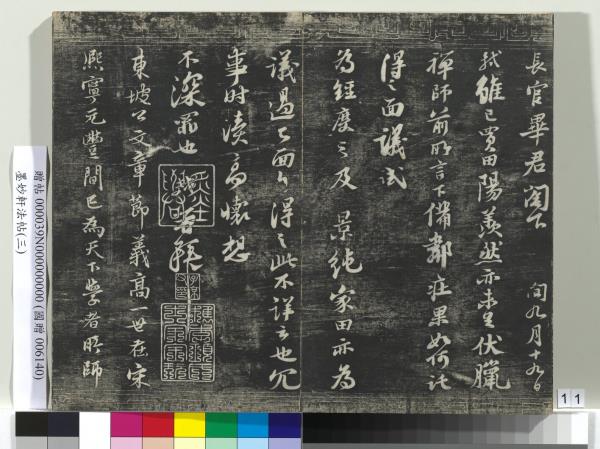 長官畢君閣下 閏九月十九日
軾雖已買田陽羨然亦未足伏臘
禪師前所言下備鄰莊果如何託
得之面議試
為經度之及 景純家田亦為
議過已面白得之此不詳云也冗
事時瀆高懷想
不深罪也 吾拜
東坡公文章節義高一世在宋
熙寧元豐間已為天下學者所師
贈帖 000039N000000000 (國贈 006140)
墨妙軒法帖(三)
11